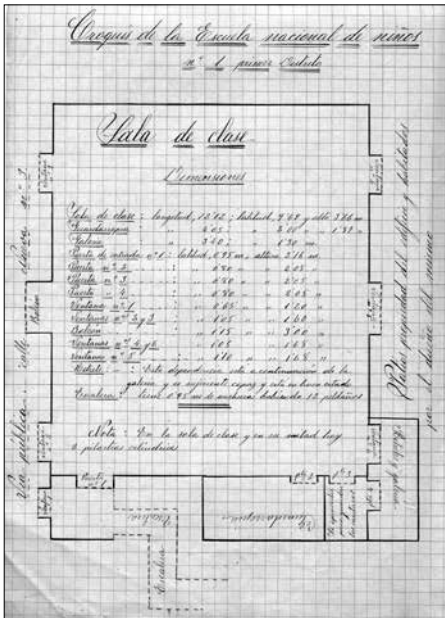 Croquis de la Escuela nacional de niños
nº 1 primer Distrito
Sala de clase
Dimensiones
Sala de clase: longitud, ; latitud, y alto 3'26 m
Guardarropa " 4'05 " " 3'00 " "
Galería " 3'60 " 1'30 m.
Puerta de entrada nº 1: latitud, 0'95 m, altura 2'16 m.
Puerta nº 2 " 0'80 " 2'05 "
Puerta nº 3 " 0'80 " 2'05 "
Puerta " 4 " 0'80 " 2'05 "
Ventana nº 1 " "
Ventanas nos 2 y 3 " 1'05 " 1'60 "
Balcón " 1'15 " 3'00 "
Ventanas nos 4 y 6 " 1'05 " 1'65 "
Ventana nº 5 " 1'10 " 1'65 "
Retrete - Esta dependencia está a continuación de la
galería y es suficiente capaz y está en buen estado
Escalera: tiene 0'95 m de anchura habiendo 12 peldaños
Nota: En la sala de clase y en su mitad hay
2 pilastras cilíndricas
Vía pública calle nº 3
Balcón
Patios propiedad del edificio y habitados
por el dueño del mismo
Puerta
Escalera
Escalera
Guardarropa
Pta 2
Pta 3